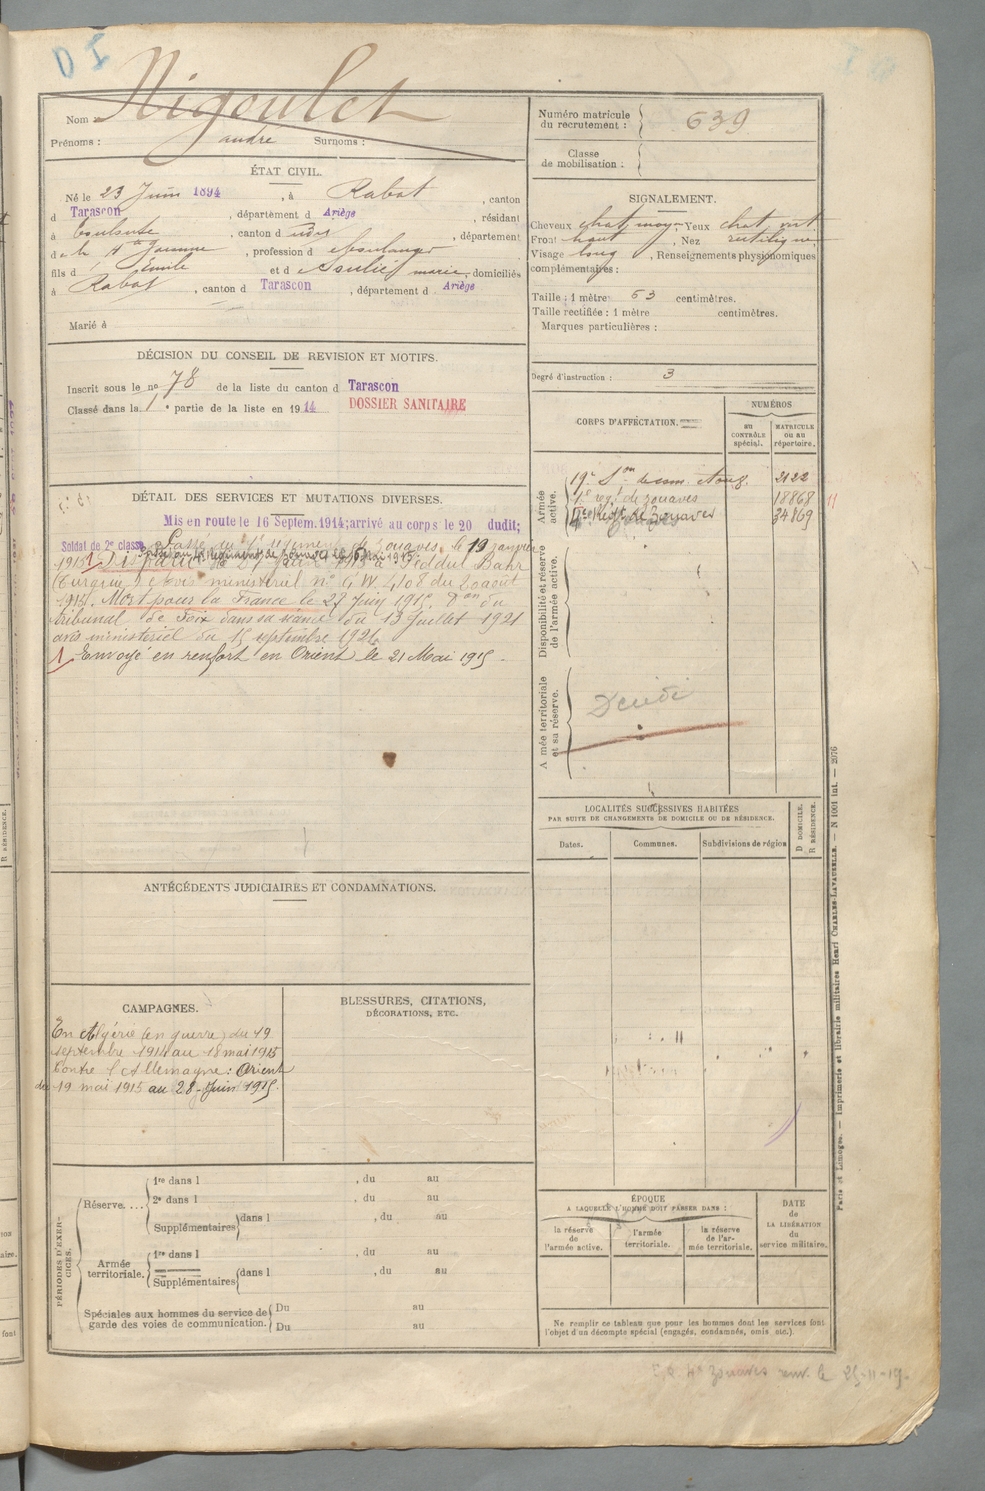 D I
Nom Nigoulet
Prénoms : andre Surnoms :
Numéro matricule
du recrutement : 639
Classe
de mobilisation :
ÉTAT CIVIL.
Né le 23 Juin 1894, à Rabat, canton
d Tarascon, département d Ariège, résidant
à Toulouse, canton d udot, département
de la Hte Garonne, profession d Boulanger
fils d Emile et d Soulié marie, domiciliés
à Rabat, canton d Tarascon, département d Ariège
Marié à
SIGNALEMENT.
Cheveux chat moyen Yeux chat
Front haut, Nez rectiligne
Visage long, Renseignements physionomiques
complémentaires :
Taille : 1 mètre 63 centimètres.
Taille rectifiée : 1 mètre centimètres.
Marques particulières :
Degré d'instruction : 3
DÉCISION DU CONSEIL DE REVISION ET MOTIFS.
Inscrit sous le no 78 de la liste du canton d Tarascon
Classé dans la 1e partie de la liste en 1914 DOSSIER SANITAIRE
DÉTAIL DES SERVICES ET MUTATIONS DIVERSES.
Mis en route le 16 Septem. 1914; arrivé au corps le 20 dudit;
Soldat de 2e classe Passé au 1er régiment de zouaves le 19 janvier
Passé au 4e régiment de zouaves le
1915. Disparu le 27 Juin 1915 à Seddul Bahr
(Turquie) avis ministeriel no G W 4108 du 20 août
1915. Mort pour la France le 27 Juin 1915. don du
tribunal de Foix dans sa séance du 13 Juillet 1921
avis ministeriel du 15 septembre 1921
1 Envoyé en renfort en Orient le 21 Mai 1915.
CORPS D'AFFECTATION.
NUMÉROS
au
CONTRÔLE
spécial.
MATRICULE
ou au
répertoire.
Armée
active.
19e Son de com. Aoug. 2122
1e reg. de zouaves 18868
Regt de Zouaves 34869
11
Disponibilité et réserve
de l'armée active.
Armée territoriale
et sa réserve.
Décédé
LOCALITÉS SUCCESSIVES HABITÉES
PAR SUITE DE CHANGEMENTS DE DOMICILE OU DE RÉSIDENCE.
Dates.
Communes.
Subdivisions de région
D DOMICILE.
R RÉSIDENCE.
ANTÉCÉDENTS JUDICIAIRES ET CONDAMNATIONS.
CAMPAGNES.
En Algérie (en guerre) du 19
septembre 1914 au 18 mai 1915
Contre l'Allemagne : Orient
du 19 mai 1915 au 28 Juin 1915.
BLESSURES, CITATIONS,
DÉCORATIONS, ETC.
PÉRIODES D'EXERCICES.
Réserve....
1re dans l , du au
2e dans l , du au
Supplémentaires dans l , du au
Armée
territoriale.
1re dans l , du au
Supplémentaires dans l , du au
Spéciales aux hommes du service de
garde des voies de communication.
Du au
Du au
ÉPOQUE
A LAQUELLE L'HOMME DOIT PASSER DANS :
la réserve
de
l'armée active.
l'armée
territoriale.
la réserve
de l'ar-
mée territoriale.
DATE
de
LA LIBÉRATION
du
service militaire.
Ne remplir ce tableau que pour les hommes dont les services font
l'objet d'un décompte spécial (engagés, condamnés, omis etc.).
Paris et Limoges. — Imprimerie et librairie militaires Henri CHARLES-LAVAUZELLE. — N 1001 int. — 2076
4e Zouaves le 25-11-19.
R RÉSIDENCE.
font